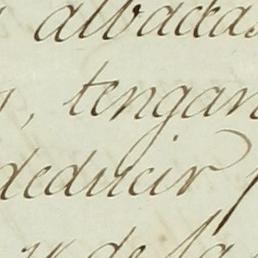 albaceas
, tengan
deducir
y de la